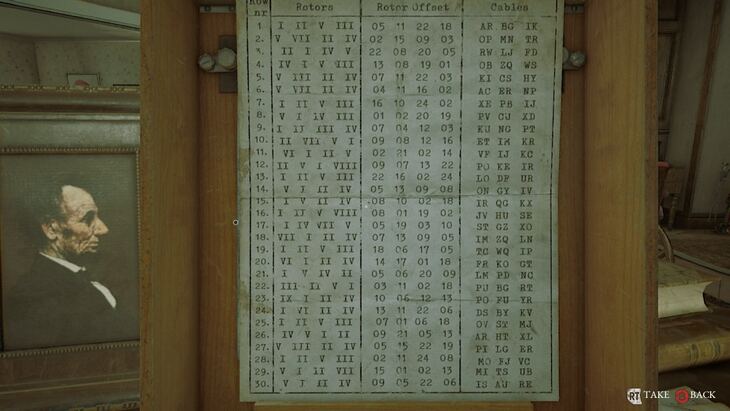 Rotors Rotor Offset Cables
1. I II V III 05 11 22 18 AR BG IK
2. V VII II IV 02 15 09 03 OP MN TR
3. II I IV V 22 08 20 05 RW LJ FD
4. IV I V III 13 08 19 01 OB ZQ WS
5. V III II IV 07 11 22 03 KI CS HY
6. V VII II IV 04 11 16 02 AC ER NP
7. I II V III 16 10 24 02 XE PB IJ
8. V I IV III 01 02 20 19 PV CJ XD
9. I II III IV 07 04 12 03 KU NG PT
10. V I II IV 09 08 12 16 ET IM KR
11. VI I II V 02 21 02 14 VF IJ KC
12. II V I VIII 09 07 13 22 PO KE IR
13. I II V III 22 16 02 24 LO DF UR
14. V I II IV 05 13 09 08 ON GY IV
15. I V II IV 08 10 02 18 IR QG KX
16. I II V VIII 08 01 19 02 JV HU SE
17. I IV VII V 05 19 03 10 ST GZ XO
18. VII I II IV 07 13 09 05 IM ZQ LN
19. I II V III 18 06 17 05 TC WQ IP
20. V I II IV 14 17 01 18 FR KO GT
21. I V IV II 05 06 20 09 LM PD NC
22. III II I V 03 11 02 18 PU BG RT
23. IX I II IV 10 06 12 13 PO FU YR
24. I VI II IV 13 11 22 06 DS BY KV
25. I II V III 07 01 06 18 OV ST MJ
26. IV V I II 09 21 05 13 AR HT XL
27. V I II IV 05 15 22 19 PI LG ER
28. I II V III 02 11 24 08 MO FJ VC
29. V I II VII 15 01 02 13 MI TS UB
30. V I II IV 09 05 22 06 IS AU RE
RT TAKE B BACK